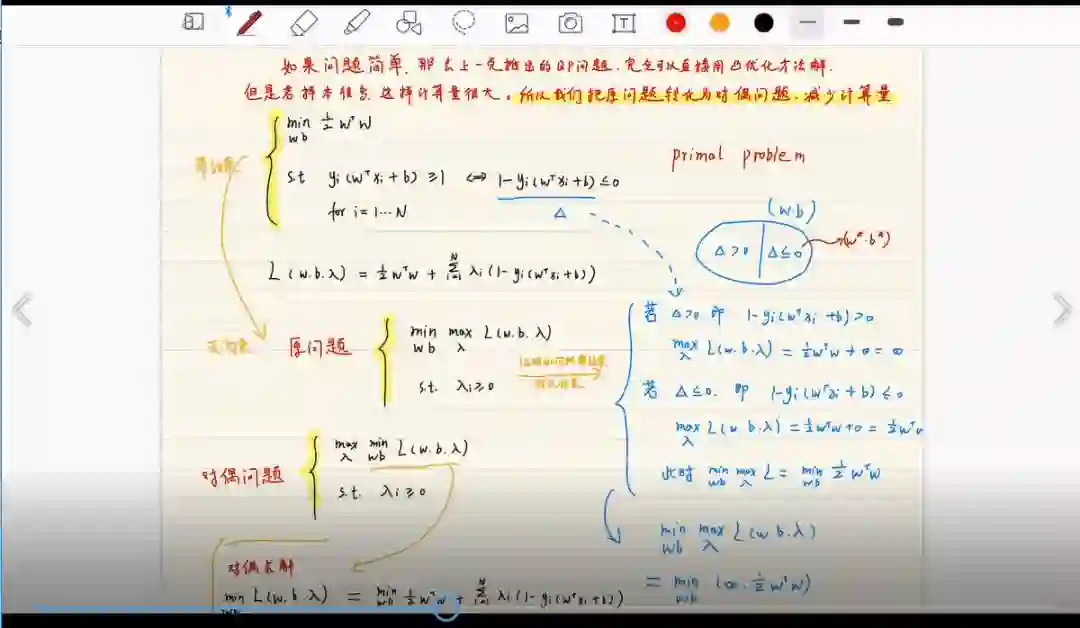 如果问题简单,那么上一页推出的QP问题,完全可以直接用凸优化方法解.
但是若样本很多,这样计算量很大,所以我们把原问题转化为对偶问题,减少计算量
min 1/2 wᵀw
w b
s.t yi(wᵀxi+b) ≥1 ⇔ 1-yi(wᵀxi+b) ≤0
for i=1…N
Δ
primal problem
(w.b)
Δ>0 Δ≤0 (w*.b*)
L(w.b.λ) = 1/2 wᵀw + Σ_{i=1}^{N} λi(1-yi(wᵀxi+b))
原问题
min max L(w.b.λ)
w b λ
s.t. λi≥0
若 Δ>0 即 1-yi(wᵀxi+b)>0
max L(w.b.λ) = 1/2 wᵀw + ∞ = ∞
λ
若 Δ≤0. 即 1-yi(wᵀxi+b) ≤0
max L(w b.λ) = 1/2 wᵀw+0 = 1/2 wᵀw
λ
此时 min max L = min 1/2 wᵀw
wb λ wb
min max L(w b.λ)
wb λ
= min (∞. 1/2 wᵀw)
wb
对偶问题
max min L(w.b.λ)
λ wb
s.t. λi≥0
对偶求解
min L(w.b.λ) = min 1/2 wᵀw + Σ_{i=1}^{N} λi(1-yi(wᵀxi+b))
wb
T